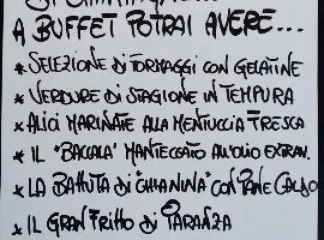 A BUFFET POTRAI AVERE...
* SELEZIONE DI FORMAGGI CON GELATINE
* VERDURE DI STAGIONE IN TEMPURA
* ALICI MARINATE ALLA MENTUCCIA FRESCA
* IL "BACCALÀ" MANTECATO ALL'OLIO EXTRAV.
* LA BATTUTA DI "CHIANINA" CON PANE CALDO
* IL GRAN FRITTO DI PARANZA